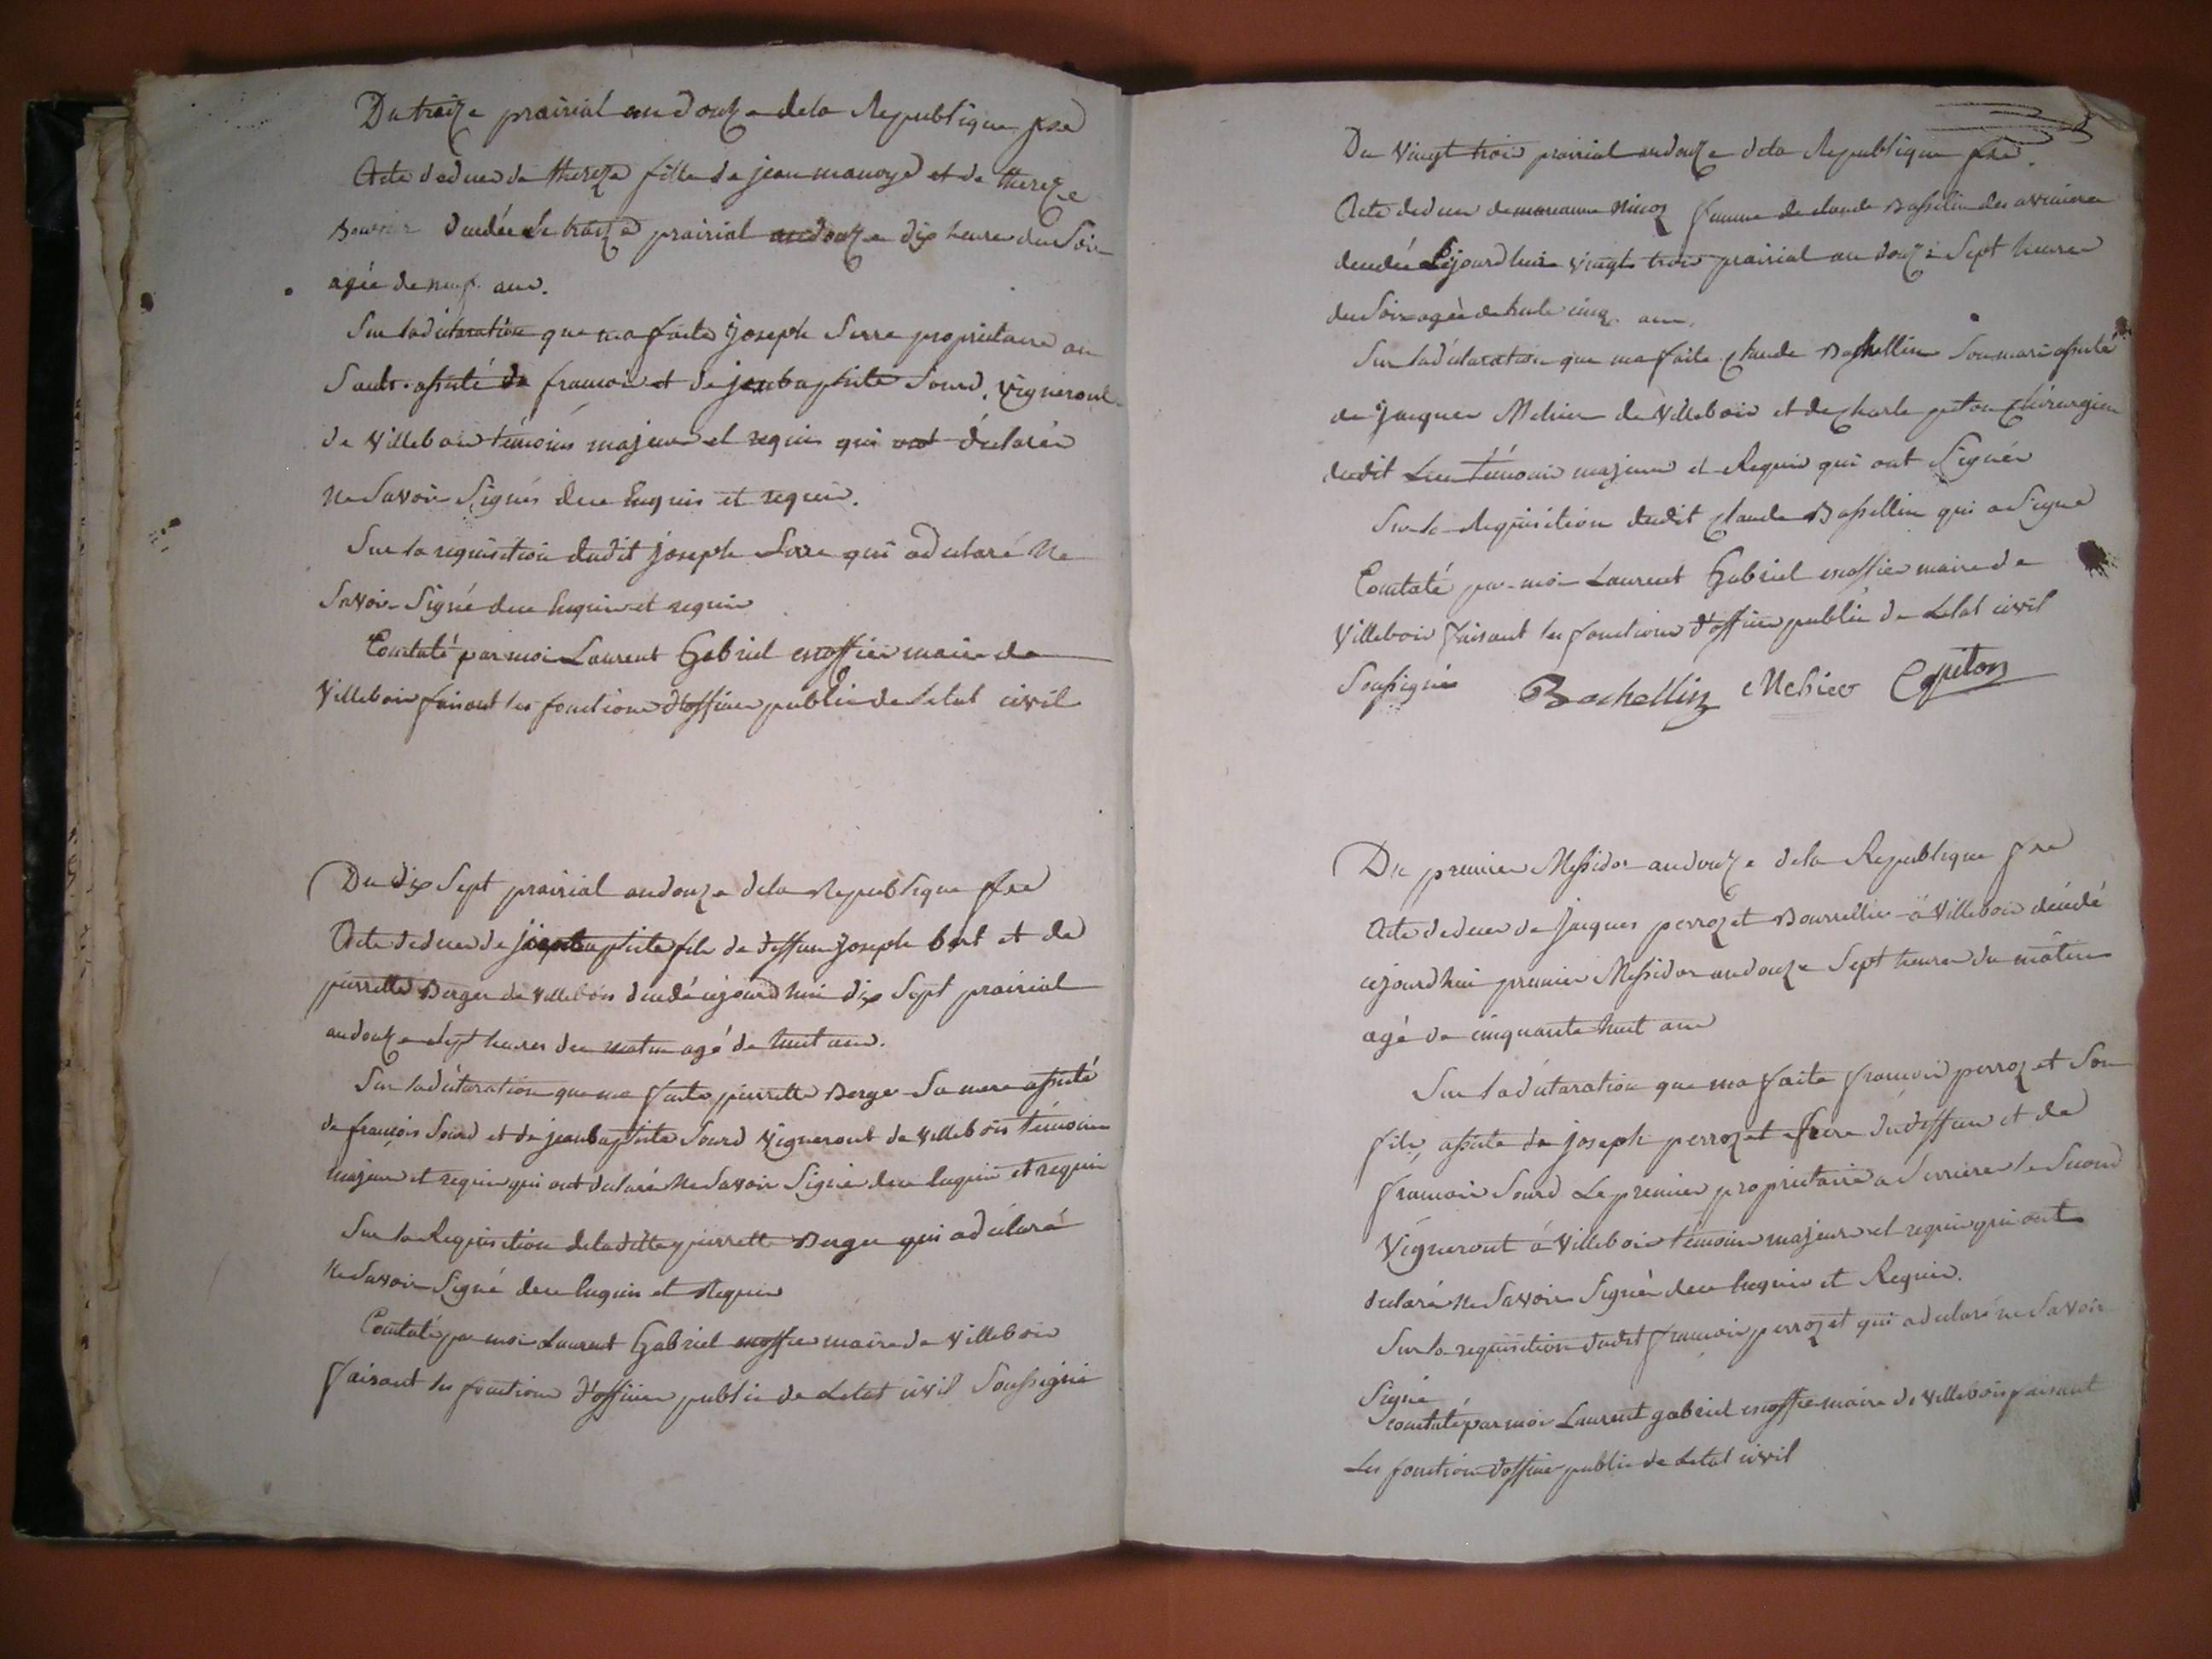 Du traize prairial an douze dela Republique fse
Acte deduces de thereze fille de jean manoye et de thereze
deucdée Le traize prairial an douze dix heures du Soir
agée de neuf ans.
Sur la declaration que ma faite joseph Serre proprietaire au
Sault. assisté de francois et de jeanbaptiste Sourd. vigneront
de villebois témoins majeurs et requis qui ont declarés
ne Savoir Signés dece Enquis et requis.
Sur la requisition dudit joseph Serre qui a declaré Ne
Savoir Signé dece Enquis et requis
Constaté par moi Laurent Gabriel maire de
Villebois faisant les fonctions d'officier public de Letat civil
Du dix Sept prairial an douze dela Republique fse
Acte deduces de jeanbaptiste fils de deffunt joseph bert et de
pierrette Berger de villebois deucdé cejourd'hui dix Sept prairial
an douze Sept heures du matin agé de huit ans.
Sur la declaration que ma faite pierrette Berger Sa mere assisté
de françois Sourd et de jeanbaptiste Sourd vigneront de villebois témoins
majeurs et requis qui ont declaré ne Savoir Signé dece Enquis et requis
Sur la Requisition de laditte pierrette Berger qui a déclaré
ne Savoir Signé dece Enquis et Requis
Constaté par moi Laurent Gabriel maire de villebois
faisant les fonctions d'officier public de Letat civil Soussigné
Du vingt trois prairial an douze dela Republique fse.
Acte deduces de marianne femme de claude
deucdée Cejourd'hui vingt trois prairial an douze Sept heures
du Soir agée de trente cinq ans.
Sur la declaration que ma faite Claude Bachellin Son mari assisté
de jacques Mehier de villebois et de charle piton chirurgien
dudit Lieu témoins majeurs et Requis qui ont Signés
Sur la Requisition dudit Claude Bassellin qui a Signé
Constaté par moi Laurent Gabriel maire de
villebois faisant les fonctions d'officier public de Letat civil
Soussignés Bachellin Mehier Cpiton
Du premier Messidor an douze dela Republique fse
Acte deduces de jacques perrozet Bourrellier à villebois décédé
cejourd'hui premier Messidor an douze Sept heures du matin
agé de cinquante huit ans
Sur la declaration que ma faite francois perrozet Son
fils, assisté de joseph perrozet frere du deffunt et de
francois Sourd Le premier proprietaire a Serrieres le Second
vigneront à villebois témoins majeurs et requis qui ont
declaré ne Savoir Signér dece Enquis et Requis.
Sur la requisition dudit francois perrozet qui a declaré ne Savoir
Signé
constaté par moi Laurent gabriel maire de villebois faisant
Les fonction d'officier public de Letat civil